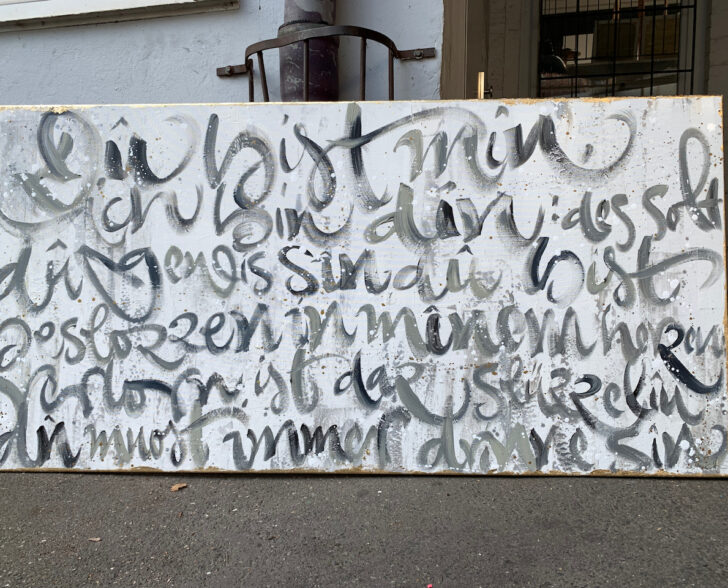 Dû bist mîn,
ich bin dîn: des solt
dû gewis sîn dû bist
beslozzen in mînem herzen
verlorn ist daz slüzzelîn
dû muost immer drinne sîn